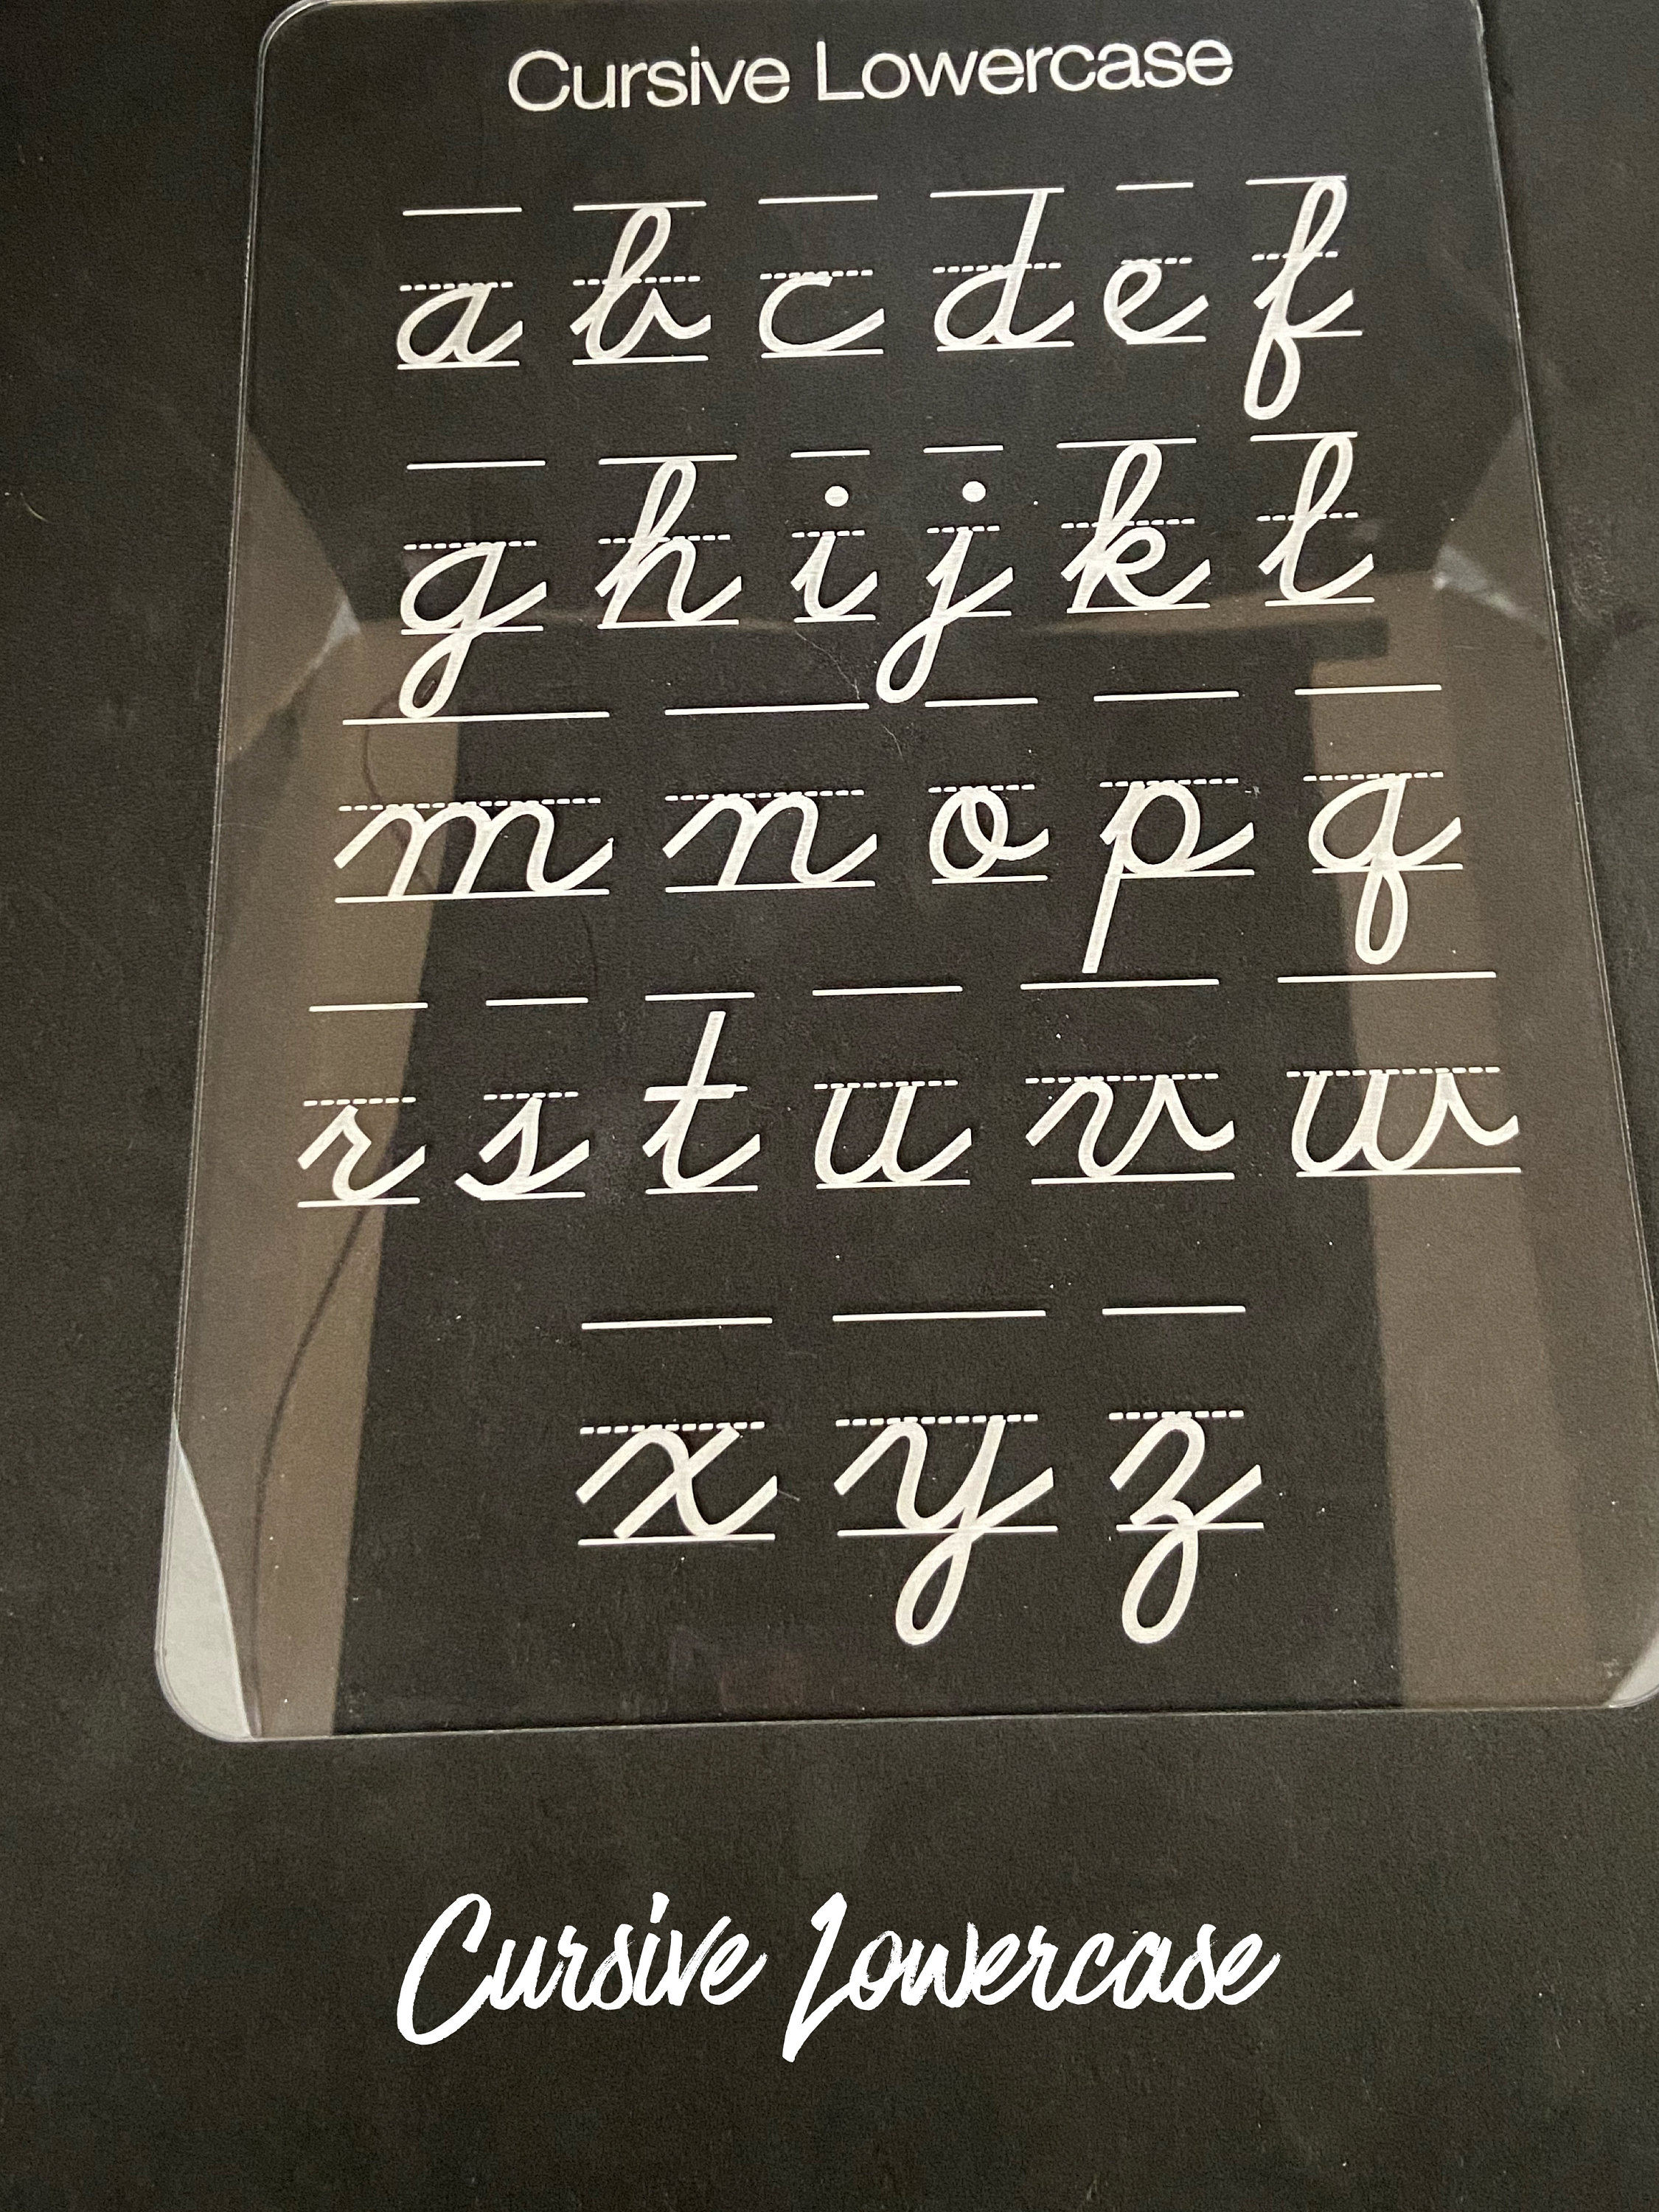 Cursive Lowercase
a b c d e f
g h i j k l
m n o p q
r s t u v w
x y z
Cursive Lowercase